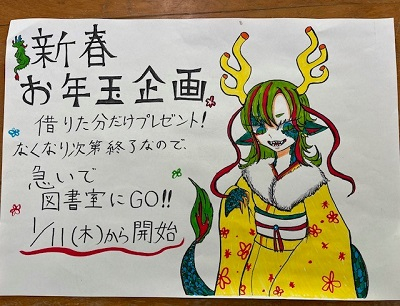 新春
お年玉企画
借りた分だけプレゼント!
なくなり次第終了なので、
急いで
図書室にGO!!
1/11(木)から開始